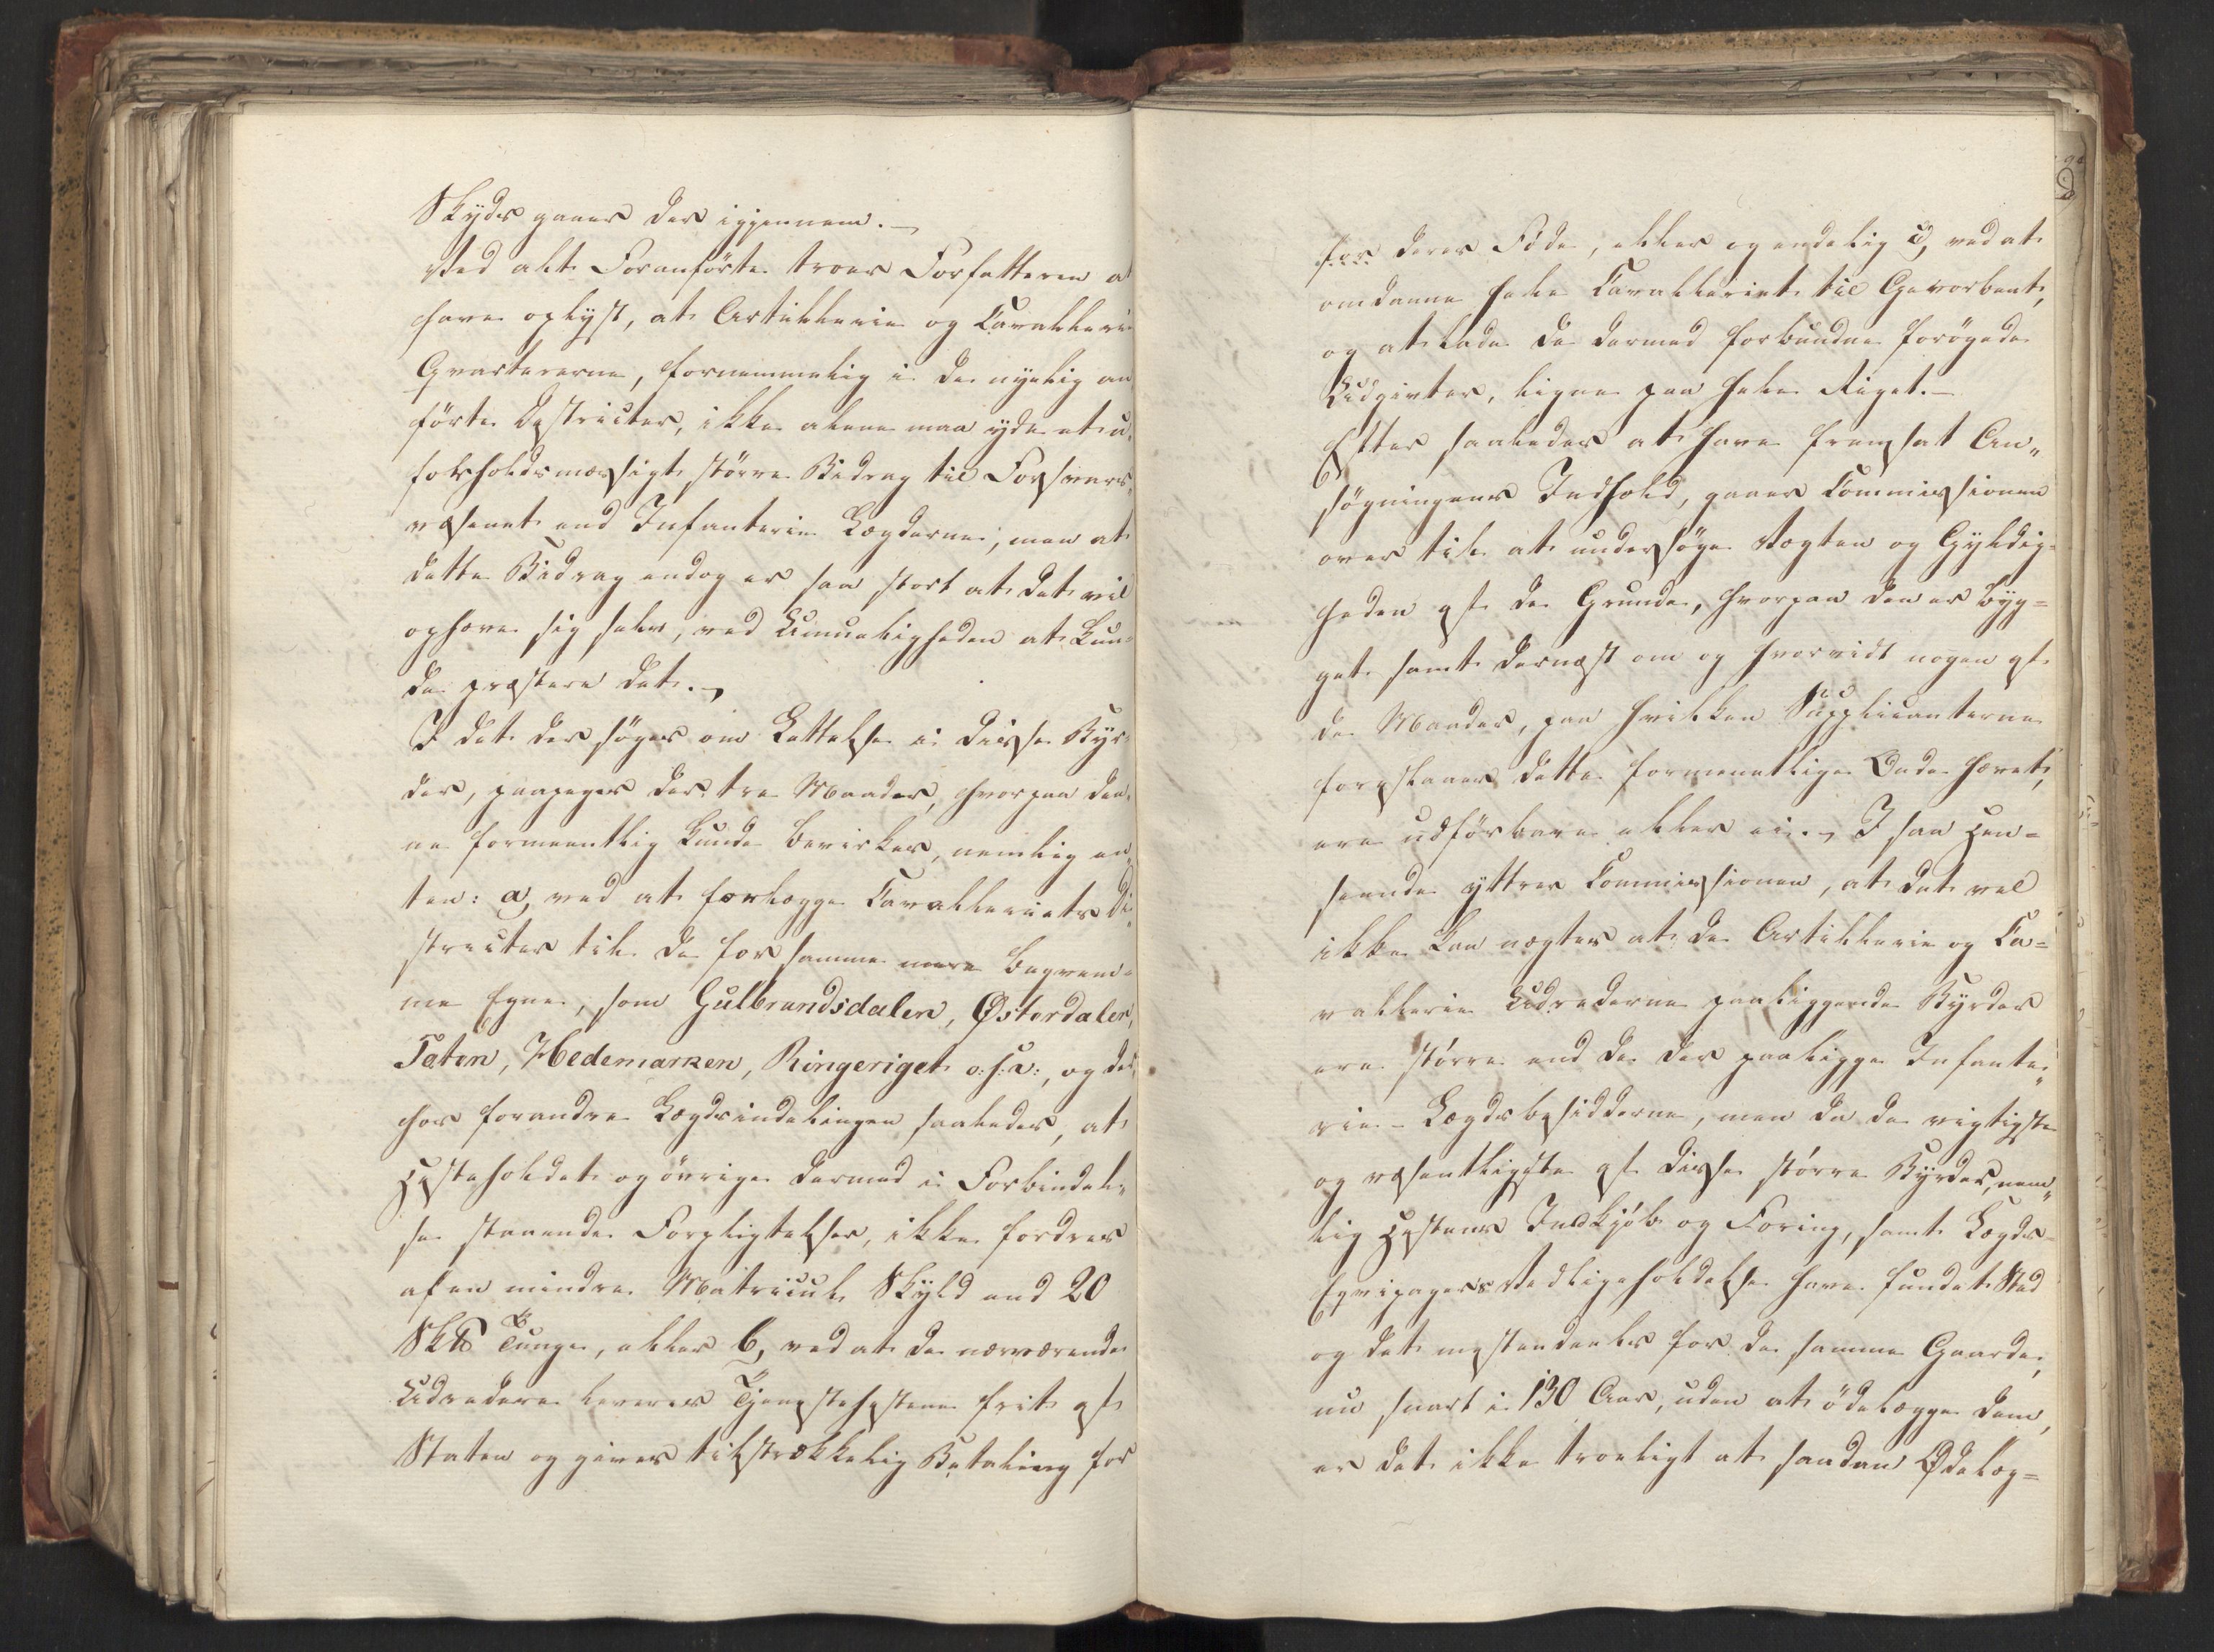 Skyds gaaer der igjennem. –
Ved alt Foranförte troer Forfatteren a
have oplyst, at Artillerie og Cavallerie
Qvartererne, fornemmelig i de nyelig an
förte Destricter, ikke alene maa yde et u¬
forholdsmæssigt större Bidrag til Forsvars¬
væsenet end Infanterie Lægderne, men at
dette Bidrag endog er saa stort at det vil
ophæve sig selv, ved Umueligheden at kun¬
de præstere det. –
I det der söges om Lettelse i disse Byr¬
der, paapeges der tre Maader, hvorpaa den¬
ne formeentlig kunde bevirkes, nemlig en¬
ten: a, ved at forlægge Cavalleriets Di¬
stricter til de for samme mere beqvem¬
me Egne, som Gulbrandsdalen, Østerdalen,
Toten, Hedemarken, Ringeriget o: s: v:, og der¬
hos forandre Lægdsindelingen saaledes, at
Hesteholdet og övrige dermed i Forbindel¬
se staaende Forpligtelser, ikke fordres
af en mindre Matricul Skyld end 20
Sk℔ Tunge, eller b, ved at de nærværende
Udredere leveres Tjenestehestene frit af
Staten og gives tilstrækkelig Betaling for
for deres Föde, eller og endelig c, ved at
omdanne hele Cavalleriet til Gevorbent,
og at lade de dermed forbundne forögede
Udgivter, ligne paa hele Riget. –
Efter saaledes at have fremsat An„
søgningens Indhold, gaaer Commissionen
over til at undersöge Vægten og Gyldig¬
heden af de Grunde, hvorpaa den er byg=
get samt dernæst om og hvorvidt nogen af
de Maader, paa hvilken Supplicanterne
foreslaaer dette formeentlige Onde hævet,
ere udförbare eller ei. – I saa Hen=
seende yttrer Commissionen, at det vel
ikke kan nægtes at de Artillerie og Ca=
vallerie Udrederne paaliggende Byrder
ere større end de der paaligge Infante„
rie-Lægdsbesidderne, men da de vigtigste
og væsentligste af disse större Byrder, nem„
lig Hestens Indkjöb og Foring, samt Lægds=
Eqvipagers Vedligeholdelse have fundet Sted
og det mestendeels for de samme Gaarde,
nu snart i 130 Aar, uden at ödelægge dem,
er det ikke troeligt at saadan Ødelæg=